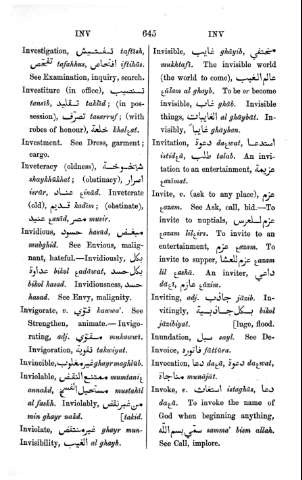 INV 645 INV
Investigation, تفتيش taftísh,
تفحّص tafaḥḥuṣ, افتحاص iftiḥáṣ.
See Examination, inquiry, search.
Investiture (in office), تنصيب
tansíb, تقليد taklíd; (in pos-
session), تصرف tasarruf; (with
robes of honour), خلعة
Investment. See Dress, garment;
cargo.
Inveteracy (oldness), شيخوخة
(obstinacy), اصرار
isrár, عناد. Inveterate
(old), قديم kadím; (obstinate),
عنيد, مصر musir.
Invidious, مبغض, حسود hasúd,
mubghid. See Envious, malig-
nant, hateful.—Invidiously, بكل
عداوة bikol, بكل حسد bikol
hasad. Invidiousness, حسد
hasad. See Envy, malignity.
Invigorate, v. قوّى kauwa'. See
Strengthen, animate.—Invigo-
rating, adj. مقوّى mukauwt.
Invigoration, تقوية takwiyat.
Invincible, غير مغلوب ghayr maghlúb.
Inviolable, ممتنع النقض mumtani
مستحيل الفسخ mustahíl
al faskh. Inviolably, من غير نقض
min ghayr nakd. [takid.
Inviolate, غير منقوض ghayr mun-
Invisibility, الغيب al ghayb.
Invisible, غايب gháyib, مختفي
mukhtafí. The invisible world
(the world to come), عالم الغيب
al ghayb. To be or become
invisible, غاب gháb. Invisible
things, الغايبات al gháybát. In-
visibly, غايبا gháyban.
Invitation, دعوة, استدعا
طلب talab. An invi-
tation to an entertainment, عزيمة
Invite, v. (ask to any place), عزم
See Ask, call, bid.—To
invite to nuptials, عزم للعرس
To invite to an
entertainment, عزم. To
invite to supper, عزم للعشا
An inviter, داعي
عازم
Inviting, adj. جاذب jázib. In-
vitingly, بكل جاذبية bikol
jázibiyat. [luge, flood.
Inundation, سيل sayl. See De-
Invoice, فاتورا fátúra.
Invocation, دعا, دعوة
مناجاة munáját.
Invoke, v. استغاث istagháş, دعا
To invoke the name of
God when beginning anything,
سمى بسم الله samma' bism allah.
See Call, implore.